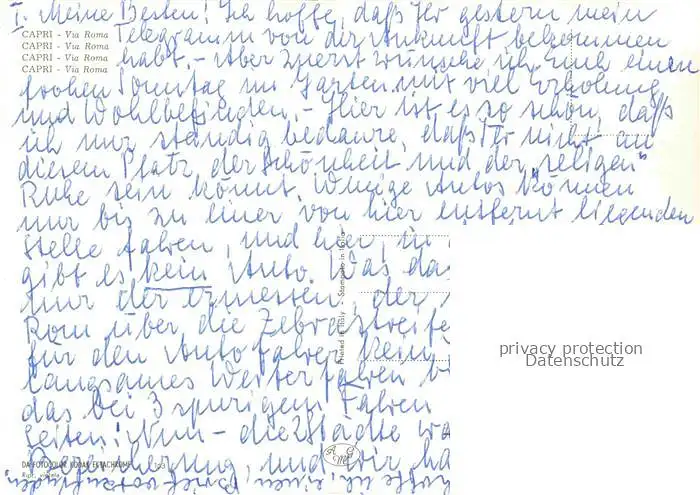 I. Meine Besten! Ich hoffe, daß Ihr gestern mein
CAPRI - Via Roma
CAPRI - Via Roma
CAPRI - Via Roma
CAPRI - Via Roma
Telegramm von der Ankunft bekommen
habt. - Aber zuerst wünsche ich Euch einen
frohen Sonntag im Garten mit viel Erholung
und Wohlbefinden. - Hier ist es so schön, daß
ich nur ständig bedaure, daß Ihr nicht an
diesem Platz der Schönheit und der "seligen"
Ruhe sein könnt. Wenige Autos können
nur bis zu einer von hier entfernt liegenden
Stelle fahren, und hier, in
gibt es kein Auto. Was das
nur der ermessen, der
Rom über die Zebrastreife
für den Autofahrer kein
langsames Weiterfahren
das bei 3 spurigem Fahren
Seiten! Nun - die Städte
Bereicherung, und wir
hoffe ich, einen Brief vorzufinden
Printed in Italy - Stampato in Italia
DA FOTOCOLOR KODAK EKTACHROME 163
Rip. vietata
privacy protection
Datenschutz